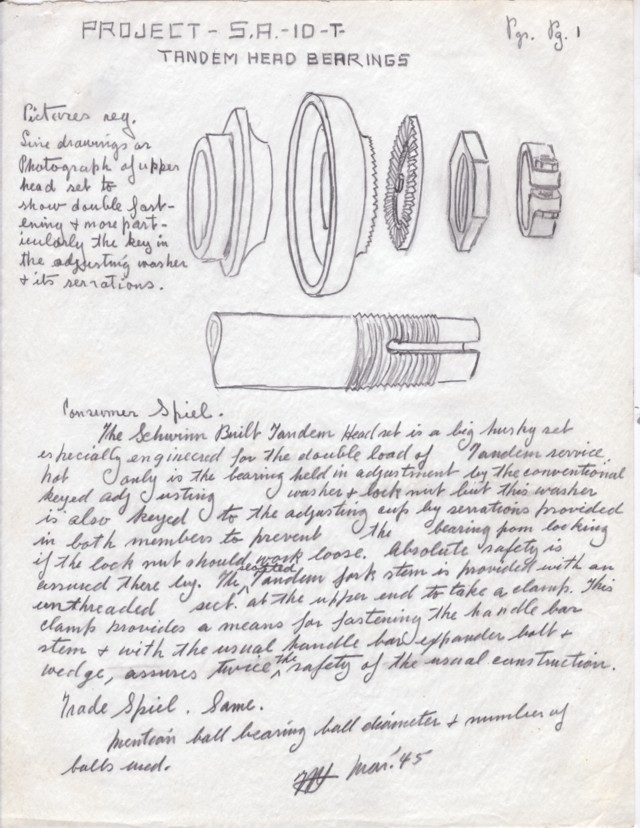 PROJECT - S.A.-10-T-
Pgr. Pg. 1
TANDEM HEAD BEARINGS
Pictures req.
Line drawings or
Photograph of upper
head set to
show double fast-
ening & more part-
icularly the key in
the adjusting washer
& its serrations.
Consumer Spiel.
The Schwinn Built Tandem Headset is a big husky set
especially engineered for the double load of Tandem service
not only is the bearing held in adjustment by the conventional
keyed adjusting washer & lock nut but this washer
is also keyed to the adjusting cup by serrations provided
in both members to prevent the bearing from locking
if the lock nut should work loose. Absolute safety is
assured there by. The slotted Tandem fork stem is provided with an
unthreaded sect. at the upper end to take a clamp. This
clamp provides a means for fastening the handle bar
stem & with the usual handle bar expander bolt &
wedge, assures twice the safety of the usual construction.
Trade Spiel. Same.
Mention ball bearing ball diameter & number of
balls used.
Mar. '45